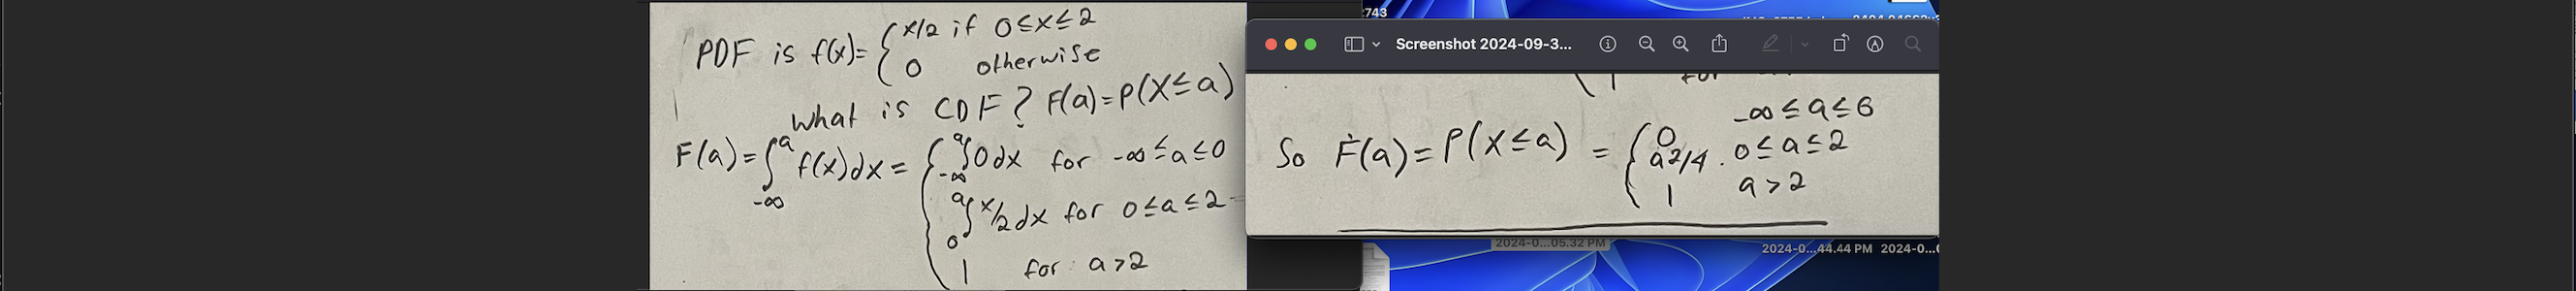 PDF is f(x)= { x/2 if 0≤x≤2
0 otherwise
What is CDF? F(a)=P(X≤a)
F(a)=∫_{-∞}^{a} f(x)dx = { ∫_{-∞}^{a} 0dx for -∞≤a≤0
∫_{0}^{a} x/2 dx for 0≤a≤2
1 for a>2
:743
Screenshot 2024-09-3...
for
-∞≤a≤6
So F(a)=P(X≤a) = { 0
a2/4. 0≤a≤2
1 a>2
2024-0...05.32 PM
2024-0...44.44 PM 2024-0...